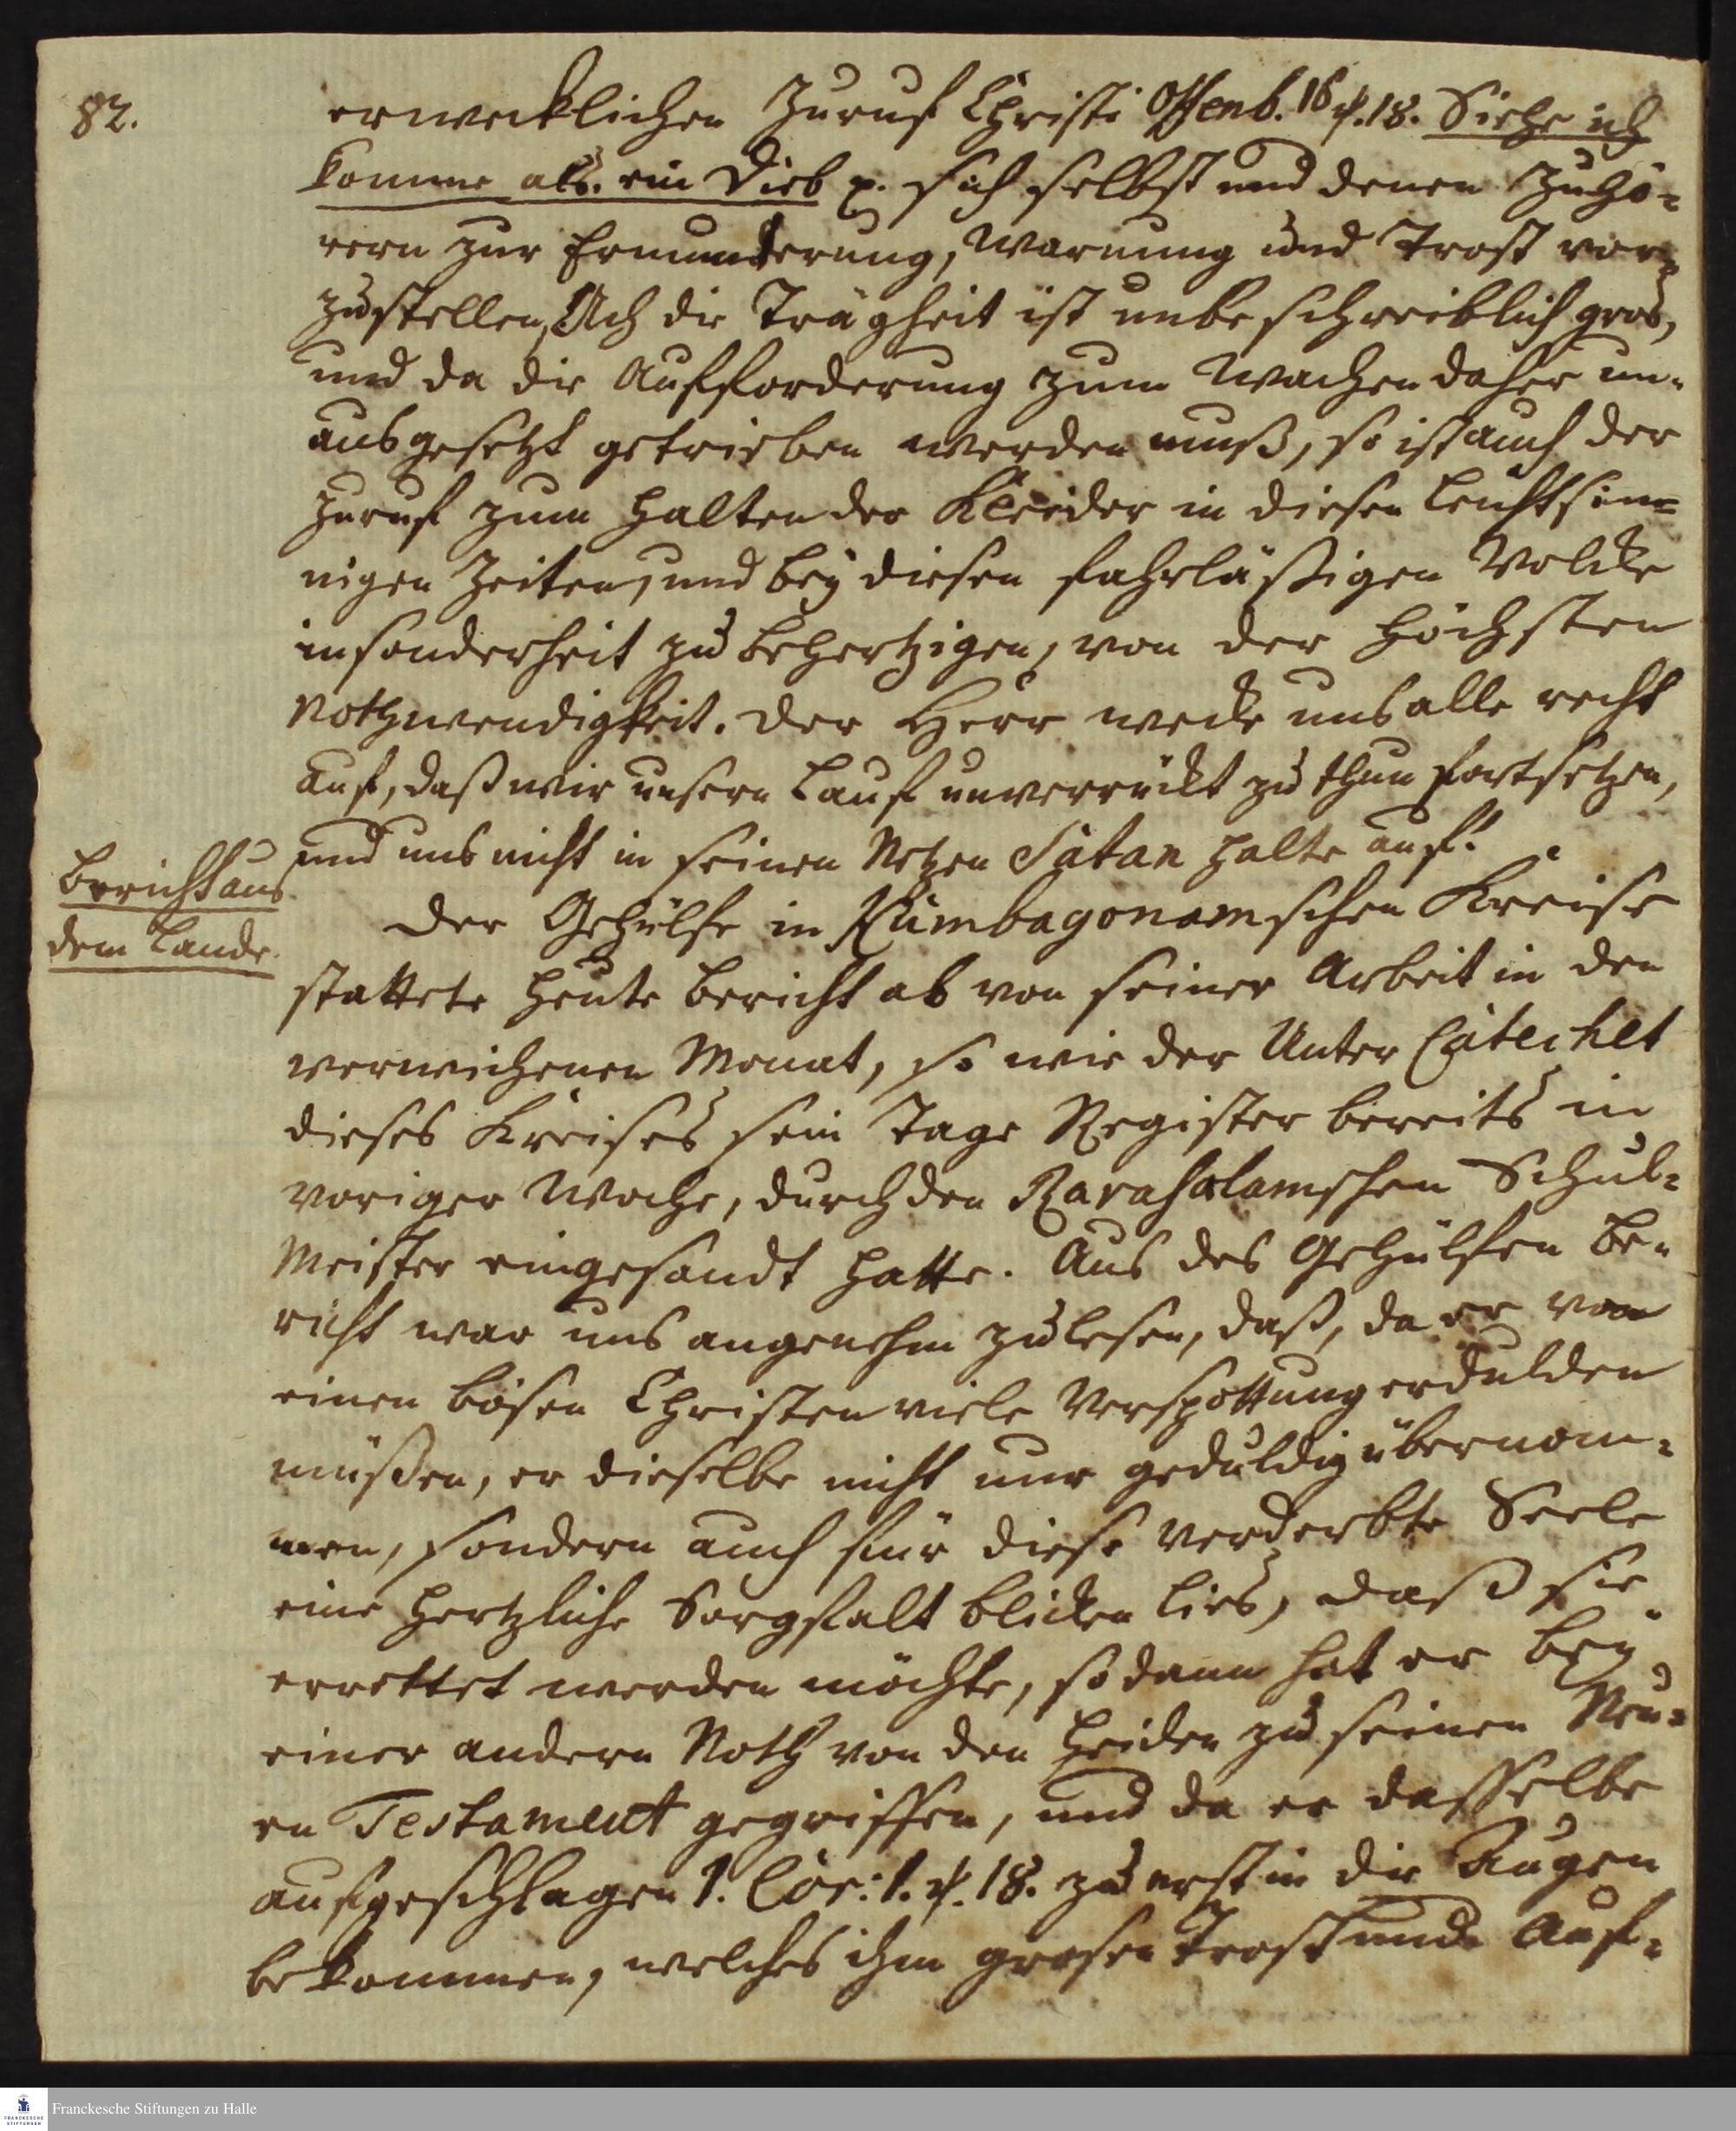 82.
erwecklichen Zuruf Christi Offenb. 16 v. 18. Siehe ich
komme als ein Dieb p. sich selbst und denen Zuhö-
rern zur Ermunterung, Warnung und Trost vor-
zustellen, Ach die Trägheit ist unbeschreiblich gros,
und da die Aufforderung zum Wachen daher un-
ausgesetzt getrieben werden muß, so ist auch der
Zuruf zum Halten der Kleider in diesen leichtsin-
nigen Zeiten, und bey diesen fahrläßigen Volcke
insonderheit zu behertzigen, von der höchsten
Nothwendigkeit. Der Herr wecke uns alle recht
auf, daß wir unsern Lauf unverrückt zu thun fortsetzen,
und uns nicht in seinen Netzen Satan halte auf!
Bericht aus
dem Lande.
Der Gehülfe in Kumbagonamschen Kreise
stattete heute Bericht ab von seiner Arbeit in den
verwichenen Monat, so wie der Unter Catechet
dieses Kreises sein Tage Register bereits in
voriger Woche, durch den Schul-
Meister eingesandt hatte. Aus des Gehülfen Be-
richt war uns angenehm zu lesen, daß, da er von
einen bösen Christen viele Verspottung erdulden
müßen, er dieselbe nicht nur geduldig übernom-
men, sondern auch für diese verderbte Seele
eine hertzliche Sorgfalt blicken lies, daß sie
errettet werden möchte, sodann hat er bey
einer andern Noth von den Heiden zu seinen Neu-
en Testament gegriffen, und da er dasselbe
aufgeschlagen 1. Cor: 1. v. 18. zu erst in die Augen
bekommen, welches ihm grosen Trost und Auf-
Franckesche Stiftungen zu Halle